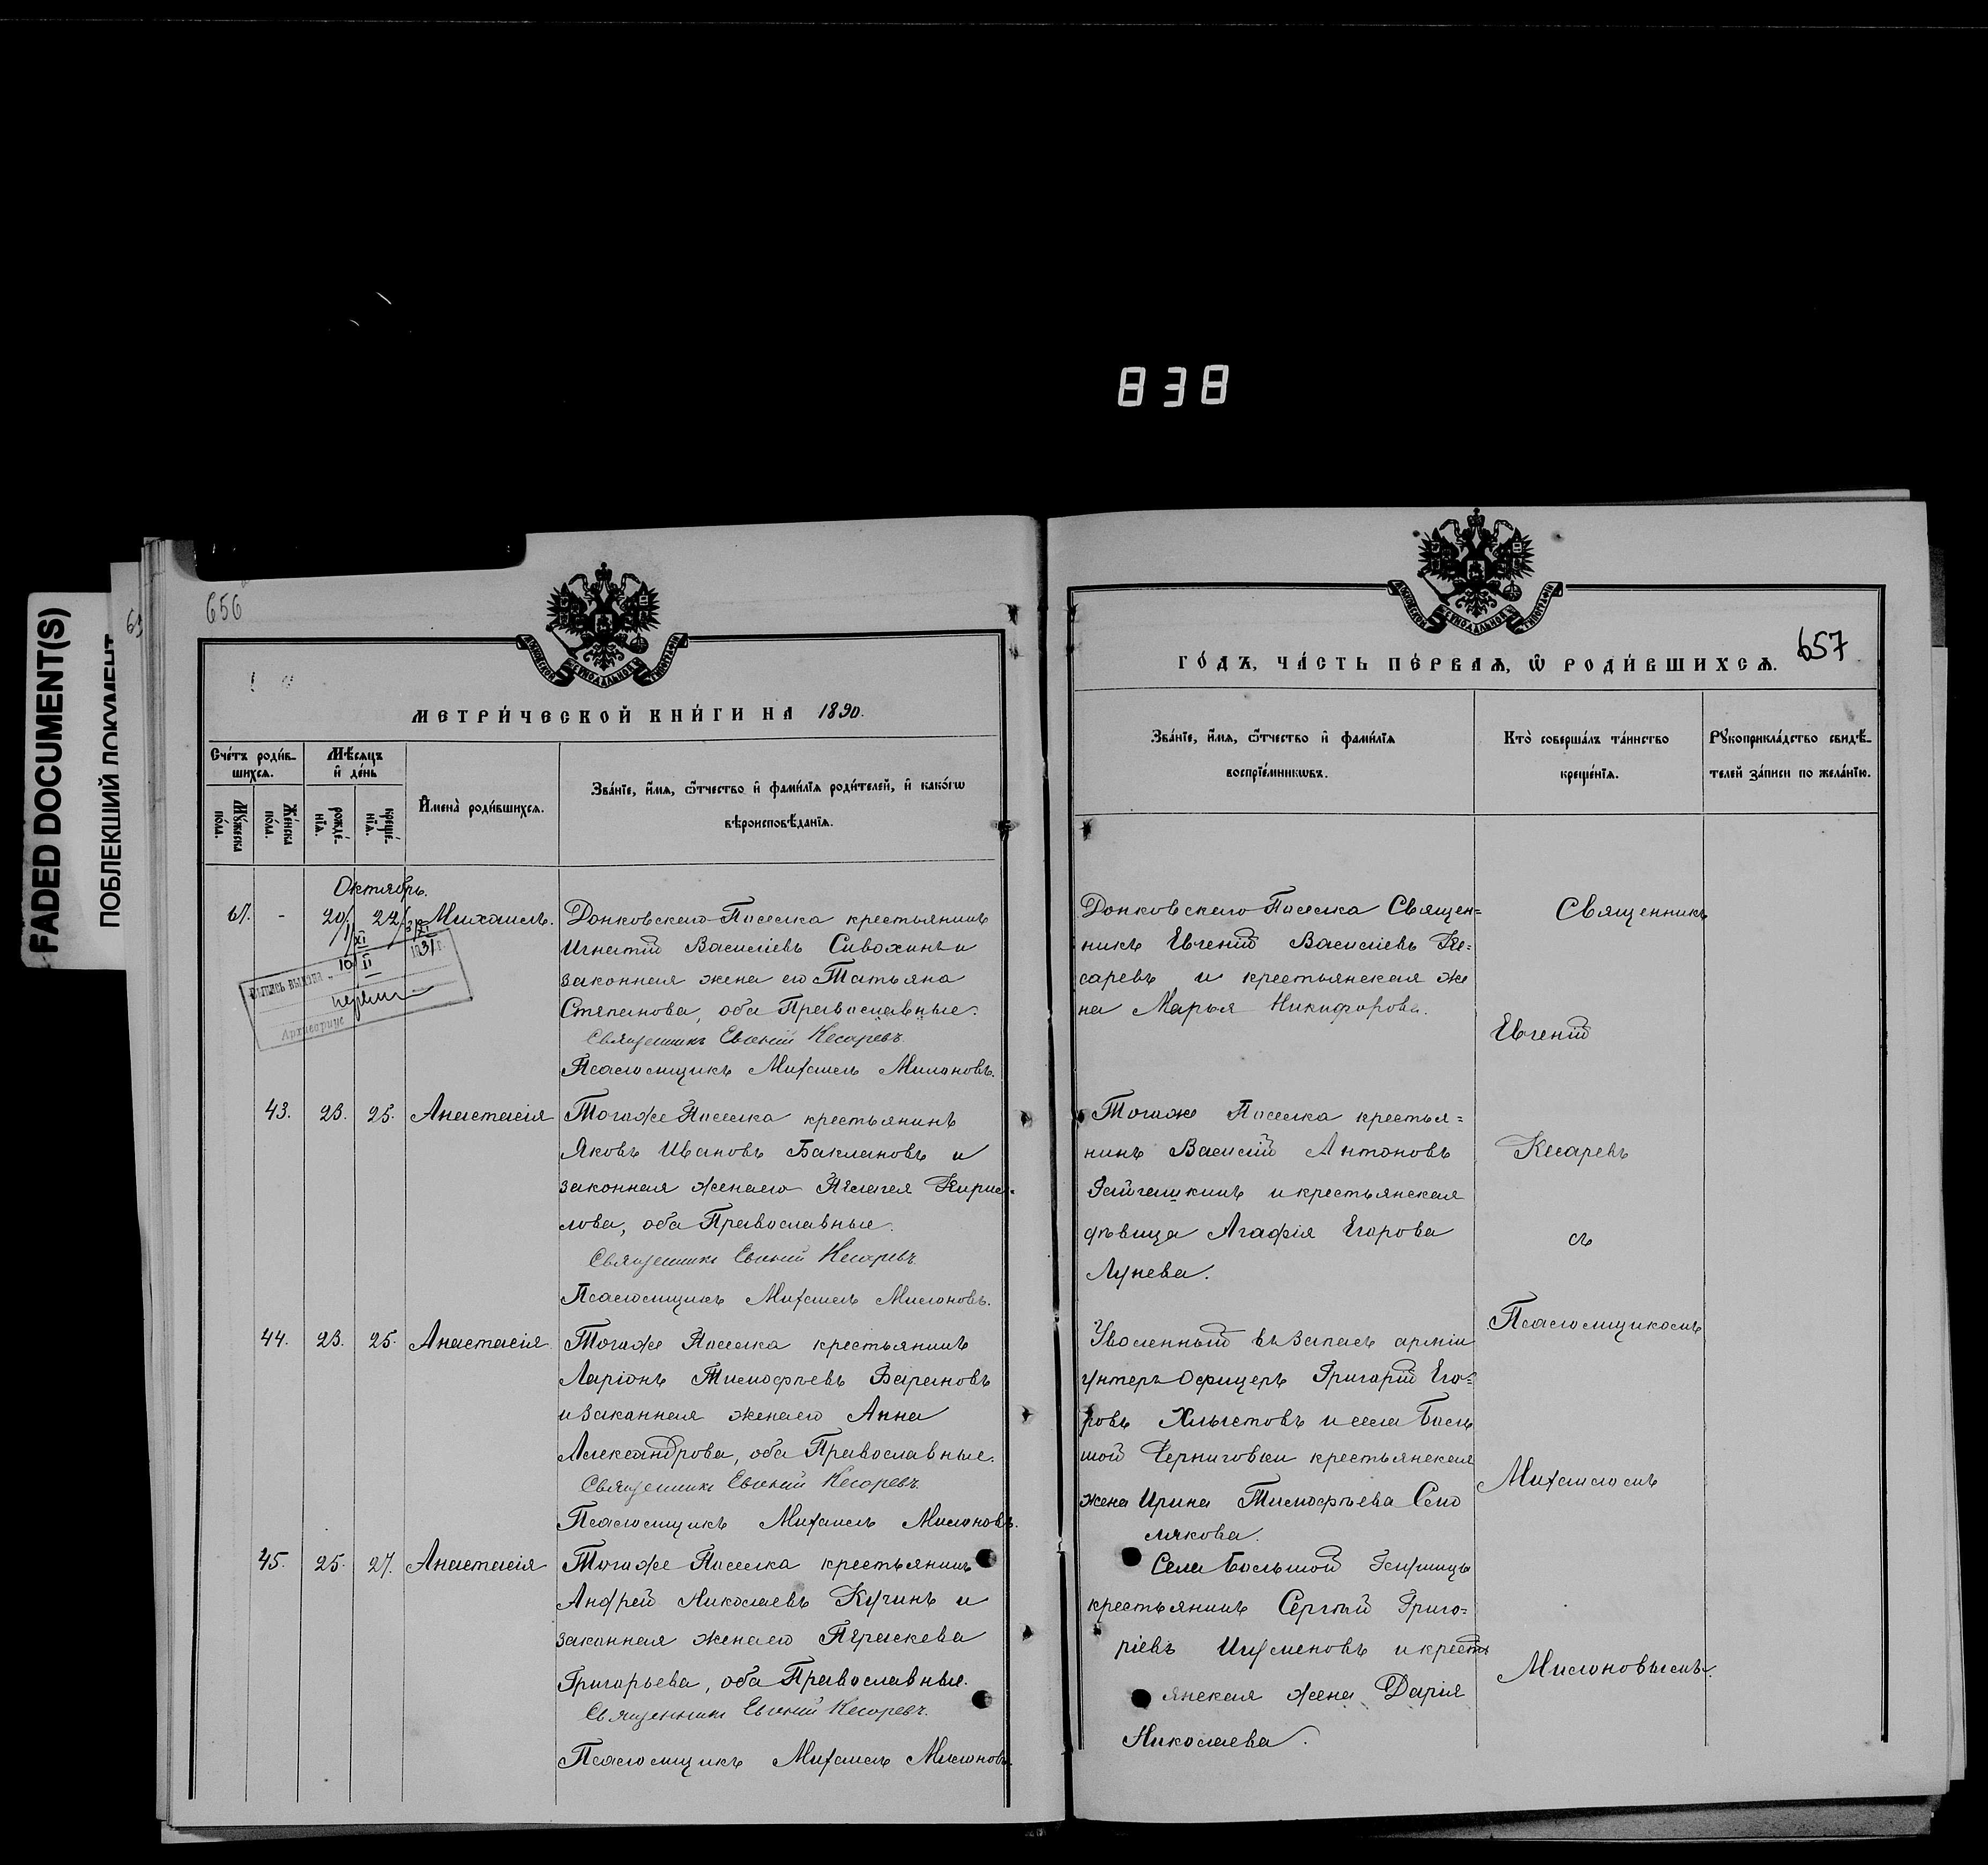 838
FADED DOCUMENT(S)
ПОБЛЕКШИЙ ДОКУМЕНТ
656
МЕТРИ́ЧЕСКОЙ КНИ́ГИ НА 1890.
Сче́тъ роди́в-
шихсѧ.
Мѣсѧцъ
и҆ де́нь
Мꙋ́жеска
по́ла.
Же́нска
по́ла.
рожде́-
нїѧ.
креще́-
нїѧ.
И҆мена̀ роди́вшихсѧ.
Зва́нїе, и҆́мѧ, ѻ҆́тчество и҆ фами́лїѧ роди́телей, и҆ како́гѡ
вѣроисповѣ́данїѧ.
Октябрь.
67. - 20. 22. Михаилъ. Донковскаго Поселка крестьянинъ
Игнатій Василіевъ Сивохинъ и
законная жена его Татьяна
Степанова, оба Православные.
Священникъ Евгеній Кесаревъ.
Псаломщикъ Михаилъ Милоновъ.
43. 23. 25. Анастасія Тогоже Поселка крестьянинъ
Яковъ Ивановъ Баклановъ и
законная жена его Пелагея Кирил-
лова, оба Православные.
Священникъ Евгеній Кесаревъ.
Псаломщикъ Михаилъ Милоновъ.
44. 23. 25. Анастасія. Тогоже Поселка крестьянинъ
Ларіонъ Тимофѣевъ Барановъ
и законная жена его Анна
Александрова, оба Православные.
Священникъ Евгеній Кесаревъ.
Псаломщикъ Михаилъ Милоновъ.
45. 25. 27. Анастасія Тогоже Поселка крестьянинъ
Андрей Николаевъ Кучинъ и
законная жена его Параскева
Григорьева, оба Православные.
Священникъ Евгеній Кесаревъ.
Псаломщикъ Михаилъ Милоновъ.
657
ГО́ДЪ, ЧА́СТЬ ПЕ́РВАѦ, Ѽ РОДИ́ВШИХСѦ.
Зва́нїе, и҆́мѧ, ѻ҆́тчество и҆ фами́лїѧ
воспрїе́мникѡвъ.
Кто̀ соверша́лъ та́инство
креще́нїѧ.
Рꙋкоприкла́дство свидѣ́-
телей за́писи по жела́нїю.
Донковскаго Поселка Священ=
никъ Евгеній Василіевъ Ке=
саревъ и крестьянская же
на Марья Никифорова.
Тогоже Поселка крестья=
нинъ Василій Антоновъ
и крестьянская
дѣвица Агафія Егорова
Лунева.
Уволенный въ запасъ арміи
унтеръ офицеръ Григорій Его=
ровъ Хлыстовъ и села Боль
шой Черниговки крестьянская
жена Ирина Тимофѣева Сто
лякова.
Села Большой Глушицы
крестьянинъ Сергѣй Григо=
ріевъ Игуменовъ и кресть
янская жена Дарія
Николаева.
Священникъ
Евгеній
Кесаревъ
съ
Псаломщикомъ
Михаиломъ
Милоновымъ.